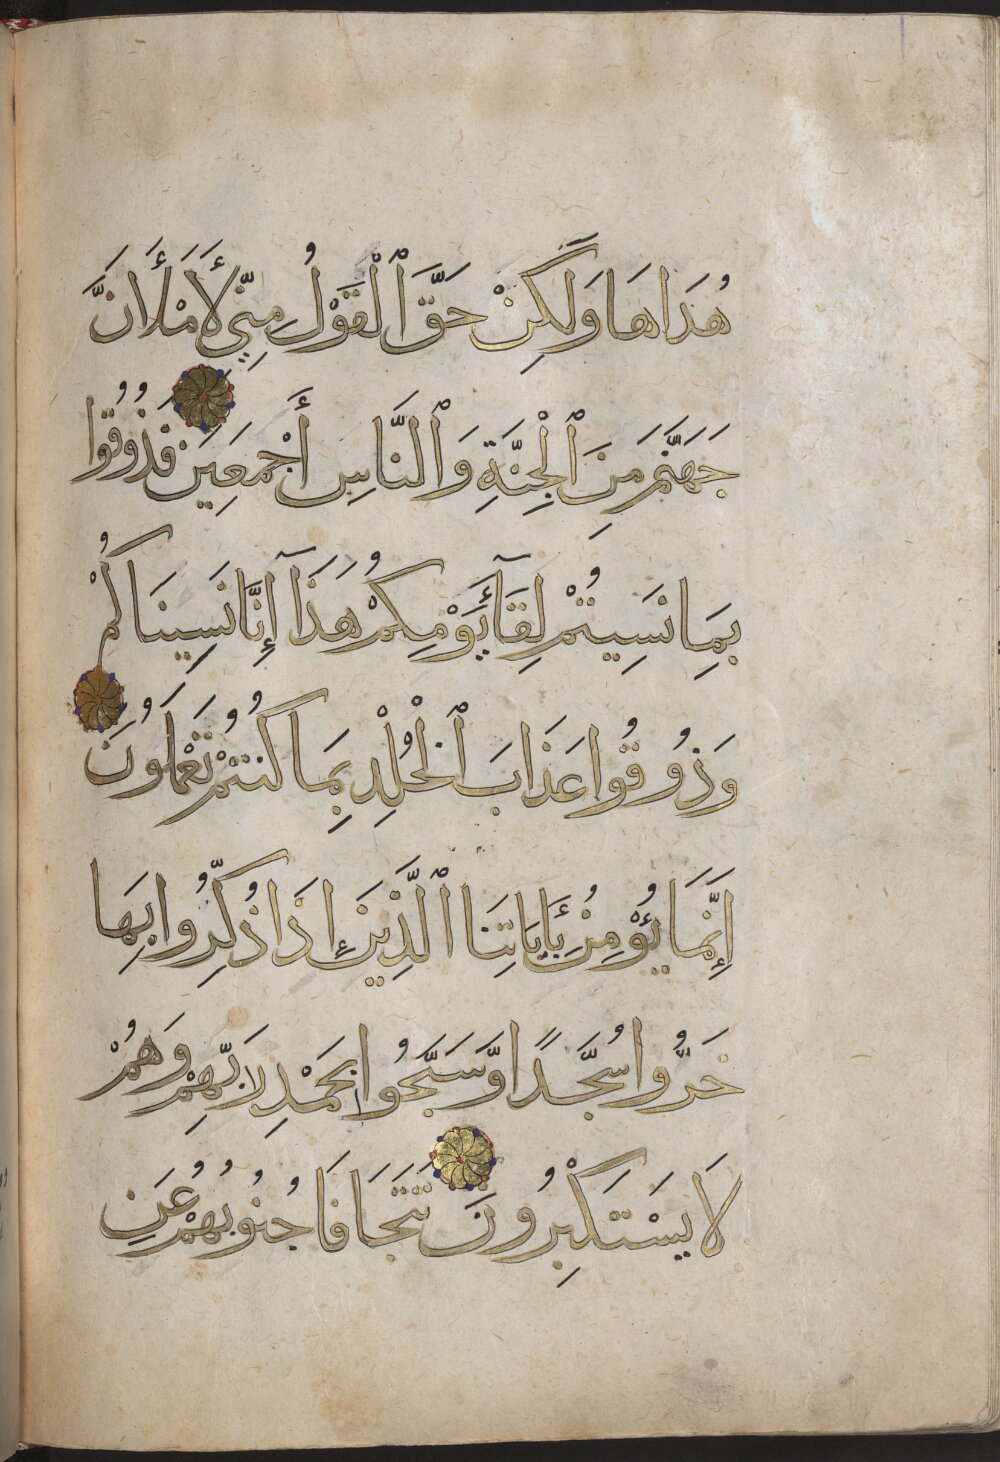 هُدَاهَا وَلَكِنْ حَقَّ ٱلْقَوْلُ مِنِّي لَأَمْلَأَنَّ
جَهَنَّمَ مِنَ ٱلْجِنَّةِ وَٱلنَّاسِ أَجْمَعِينَ فَذُوقُوا
بِمَا نَسِيتُمْ لِقَآءَ يَوْمِكُمْ هَذَآ إِنَّا نَسِينَاكُمْ
وَذُوقُوا عَذَابَ ٱلْخُلْدِ بِمَا كُنتُمْ تَعْمَلُونَ
إِنَّمَا يُؤْمِنُ بِـَٔايَاتِنَا ٱلَّذِينَ إِذَا ذُكِّرُوا بِهَا
خَرُّوا سُجَّدًا وَّسَبَّحُوا بِحَمْدِ رَبِّهِمْ وَهُمْ
لَا يَسْتَكْبِرُونَ تَتَجَافَا جُنُوبُهُمْ عَنِ